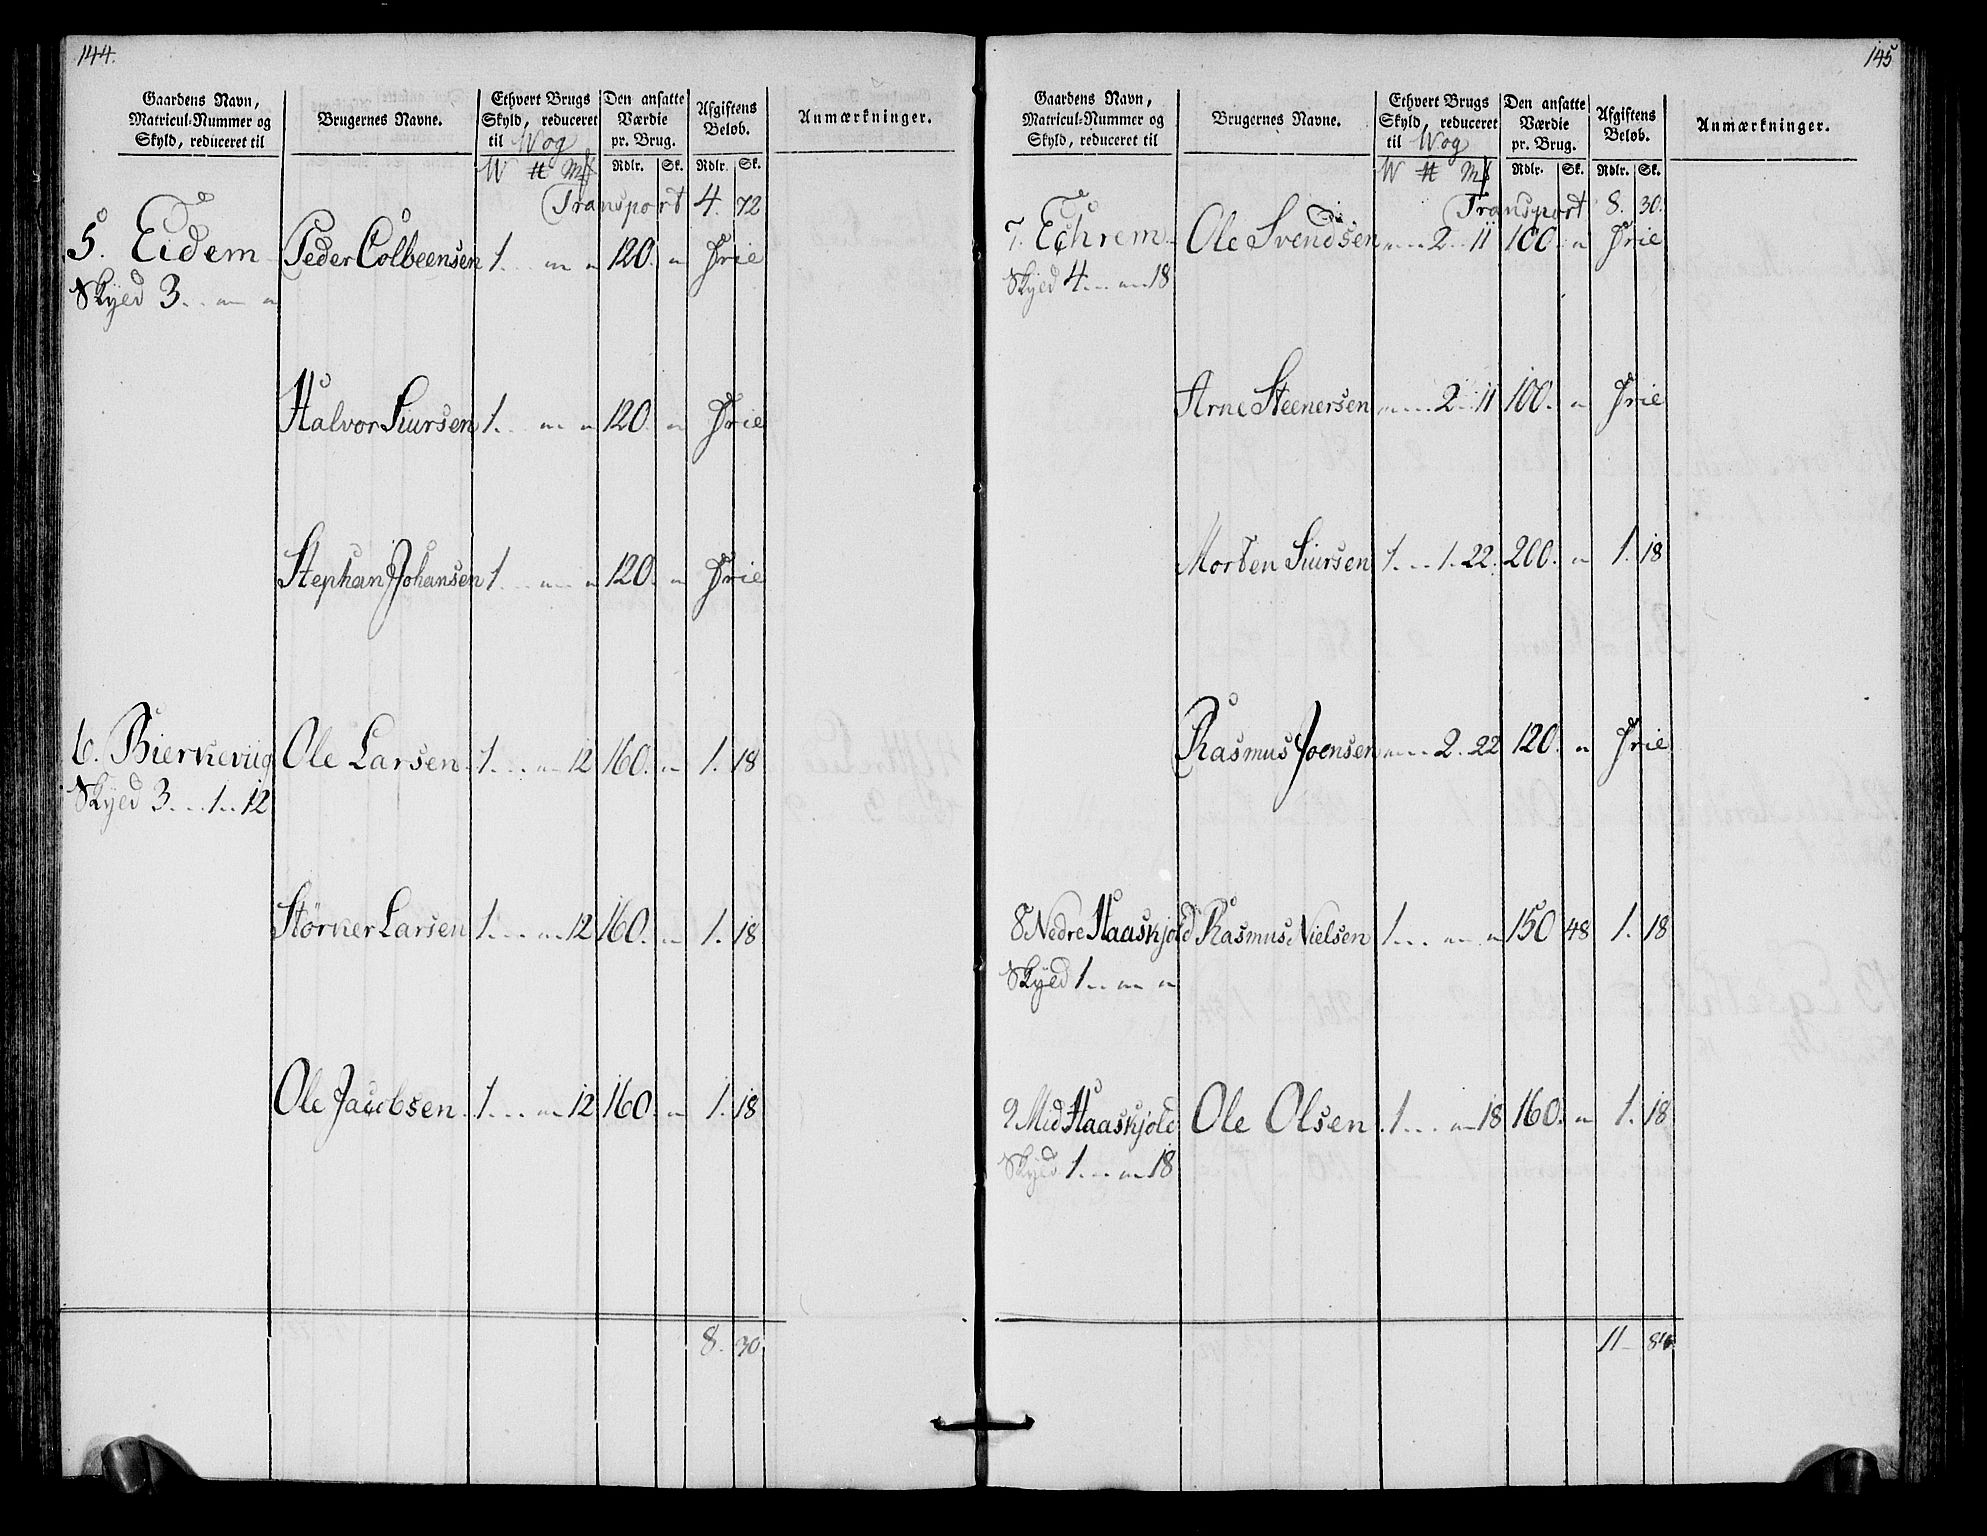 144.
Gaardens Navn, Matricul-Nummer og Skyld, reduceret til
Brugernes Navne.
Ethvert Brugs Skyld, reduceret til Wog
Den ansatte Værdie pr. Brug.
Afgiftens Beløb.
Anmærkninger.
W ℔ Mk Rdlr. Sk. Rdlr. Sk.
Transport 4. 72
5. Eidem Peder Colbeensen 1. . . „ „ 120. „ Frie
Skyed 3. . „ „
Halvor Siursen 1. . . „ „ 120. „ Frie
Stephan Johansen 1. . . „ „ 120. „ Frie
6. Bierkeviig Ole Larsen 1. . . „ 12 160. „ 1. 18
Skyed 3. . . 1. . 12
Størker Larsen 1. . . „ 12 160. „ 1. 18
Ole Jacobsen 1. . . „ 12 160. „ 1. 18
8. 30.
145
Gaardens Navn, Matricul-Nummer og Skyld, reduceret til
Brugernes Navne.
Ethvert Brugs Skyld, reduceret til Wog
Den ansatte Værdie pr. Brug.
Afgiftens Beløb.
Anmærkninger.
W ℔ Mk Rdlr. Sk. Rdlr. Sk.
Transport 8. 30.
7. Echrem Ole Svendsen „ . . 2. . 11 100. „ Frie
Skyed 4. . . „ . . 18
Arne Steenersen „ . . . 2. . 11 100. „ Frie
Morten Siursen 1. . . 1. 22. 200. „ 1. 18
Rasmus Joensen „ . . . 2. 22 120. „ Frie
8 Nedre Haaskjold Rasmus Nielsen 1. . . „ „ 150 48 1. 18
Skyed 1. . „ „
9 Mid Haaskjold Ole Olsen 1. . . „ 18 160. „ 1. 18
Skyed 1. . . „ 18
11 84